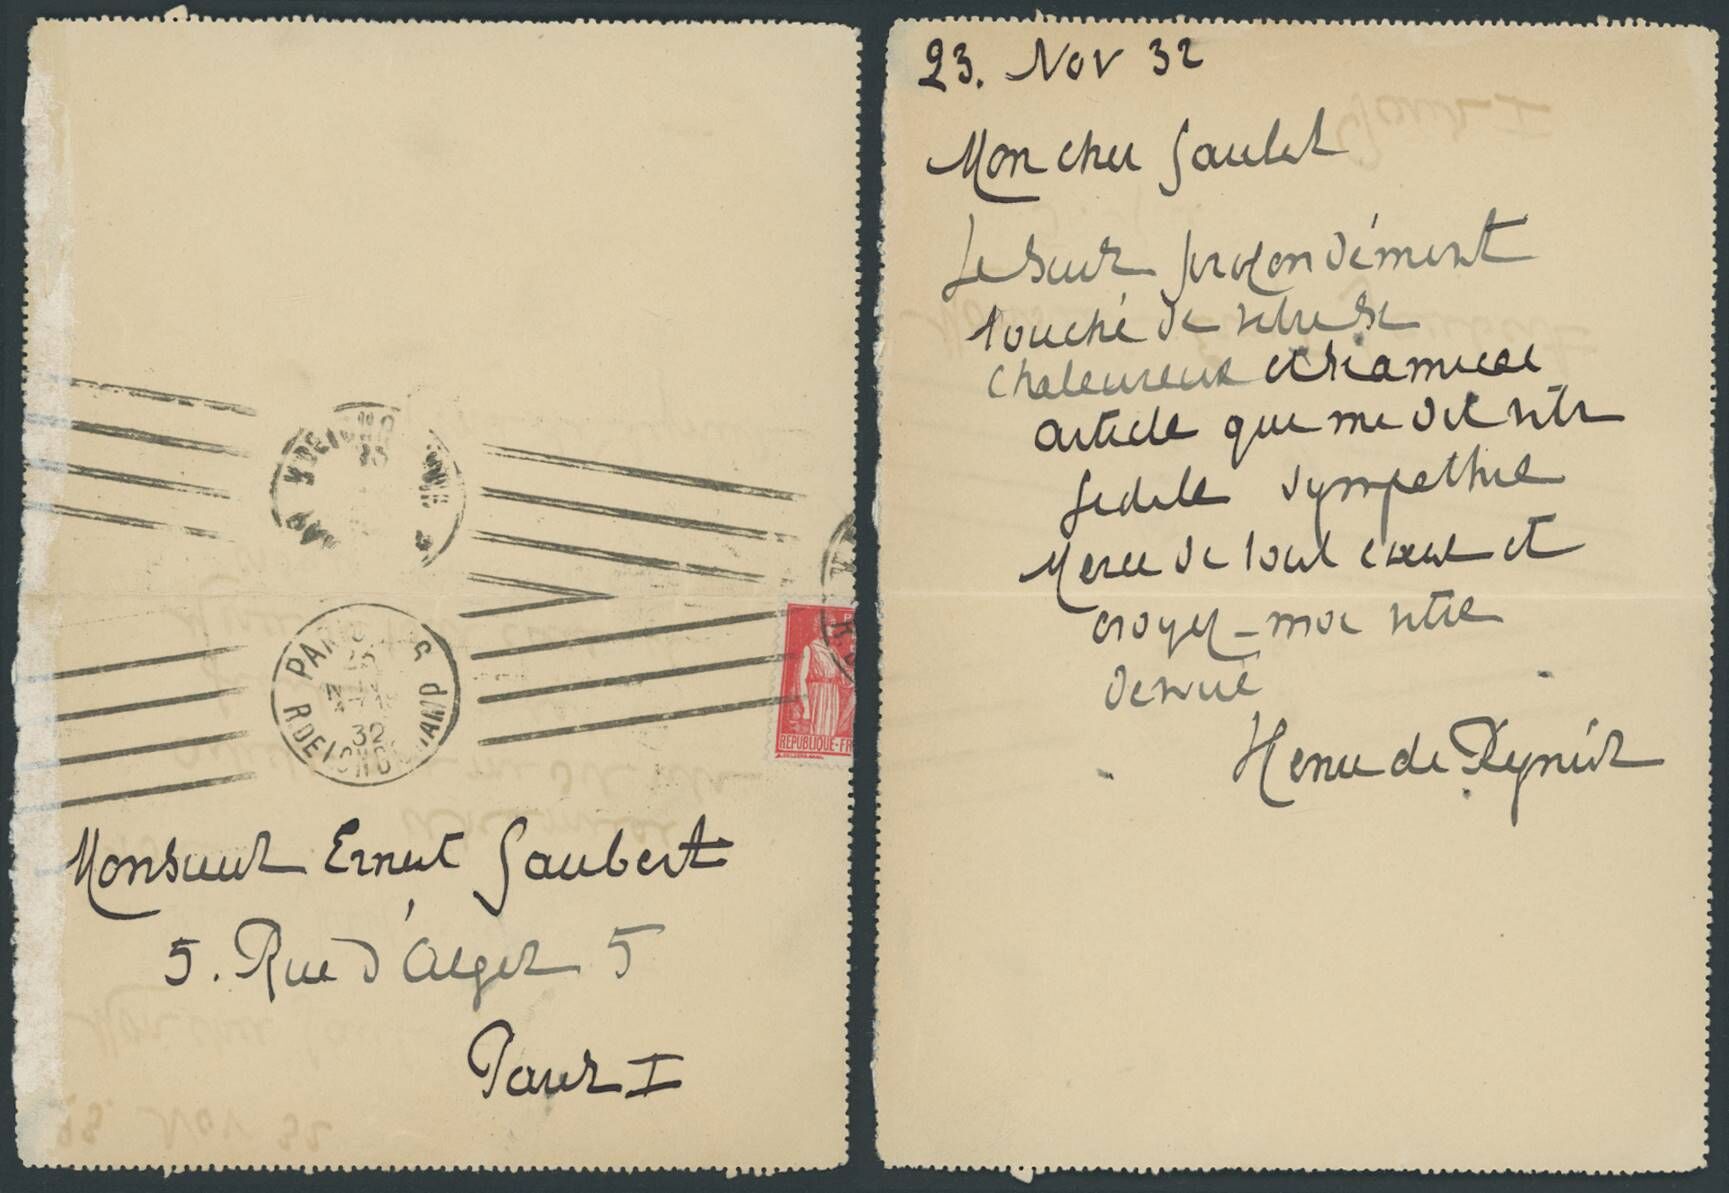 PARIS
32
R. DE LONGCHAMP
REPUBLIQUE-FR
Monsieur Ernest Gaubert
5. Rue d'Alger 5
Paris I
23. Nov 32
Mon cher Gaubert
Je suis profondément
touché de votre si
chaleureux et si amical
article que me dit votre
fidele sympathie
Merci de tout coeur et
croyez-moi votre
devoué
Henri de Régnier